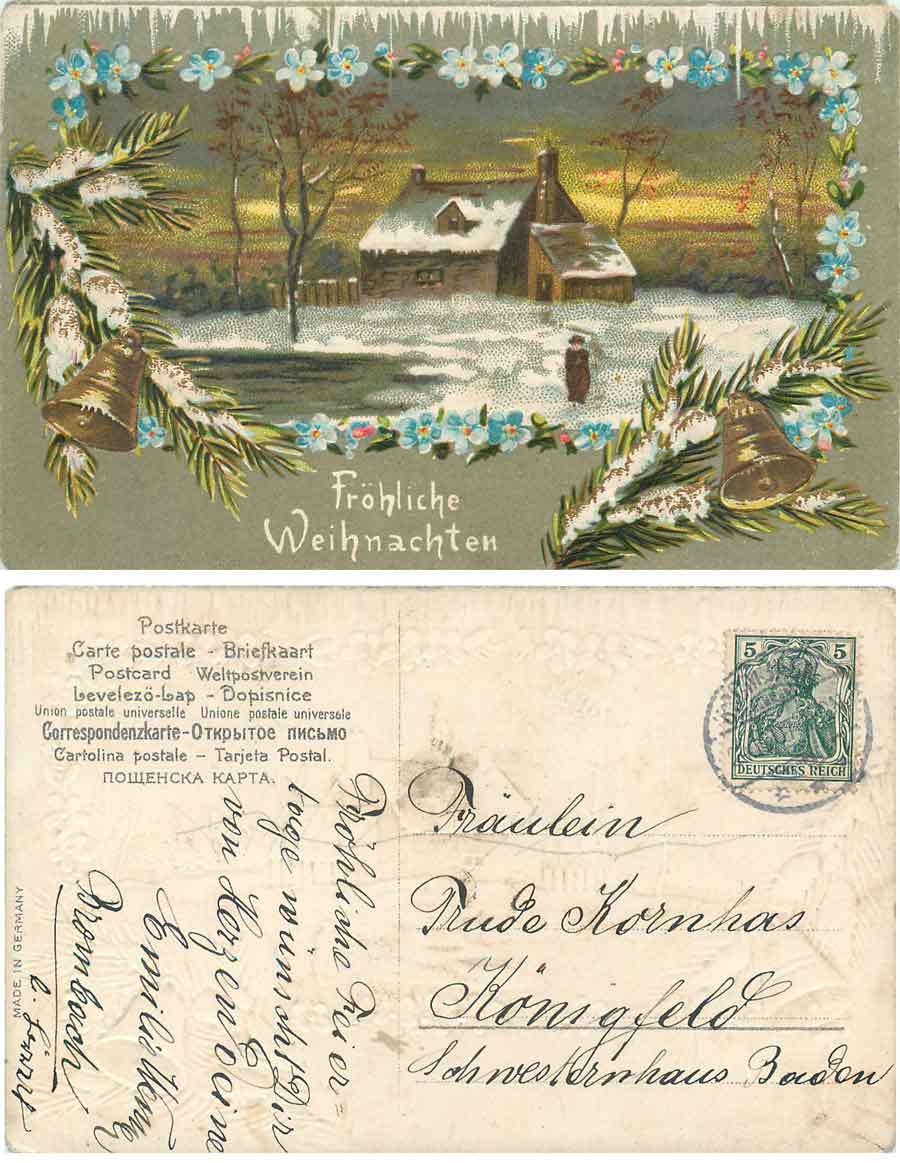 Fröhliche
Weihnachten
Postkarte
Carte postale - Briefkaart
Postcard Weltpostverein
Levelező-Lap - Dopisnice
Union postale universelle Unione postale universale
Correspondenzkarte - Открытое письмо
Cartolina postale - Tarjeta Postal.
ПОЩЕНСКА КАРТА.
MADE IN GERMANY
5 5
DEUTSCHES REICH
Fröhliche Feier=
tage wünscht Dir
von Herzen Deine
Brombach
Fräulein
Trude Kornhas
Königfeld
Schwesternhaus Baden